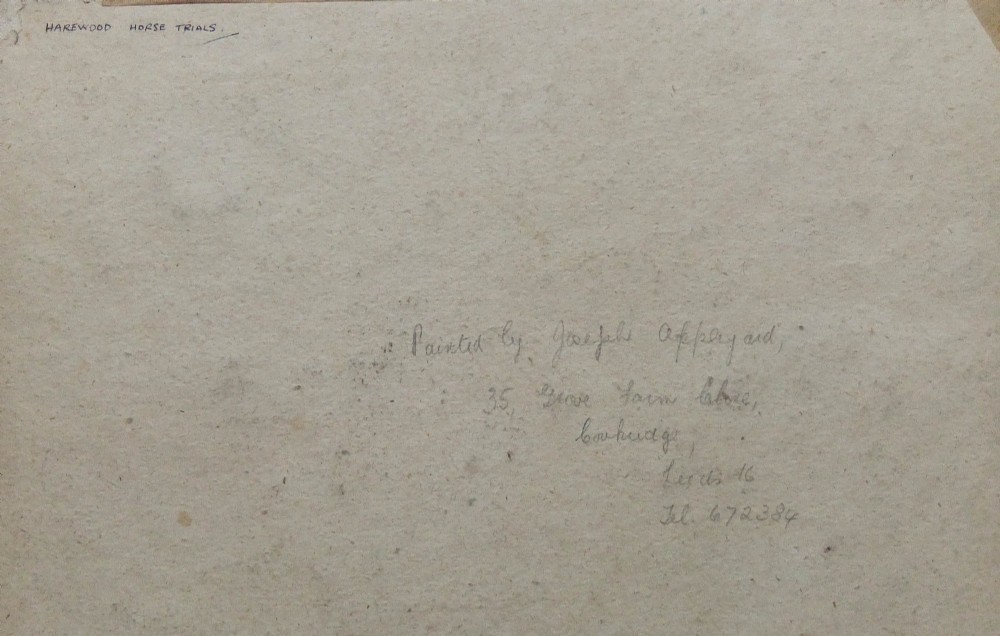 HAREWOOD HORSE TRIALS.
Painted by Joseph Appleyard,
35, Grove Farm Close,
Cookridge,
Leeds 16
Tel. 672384